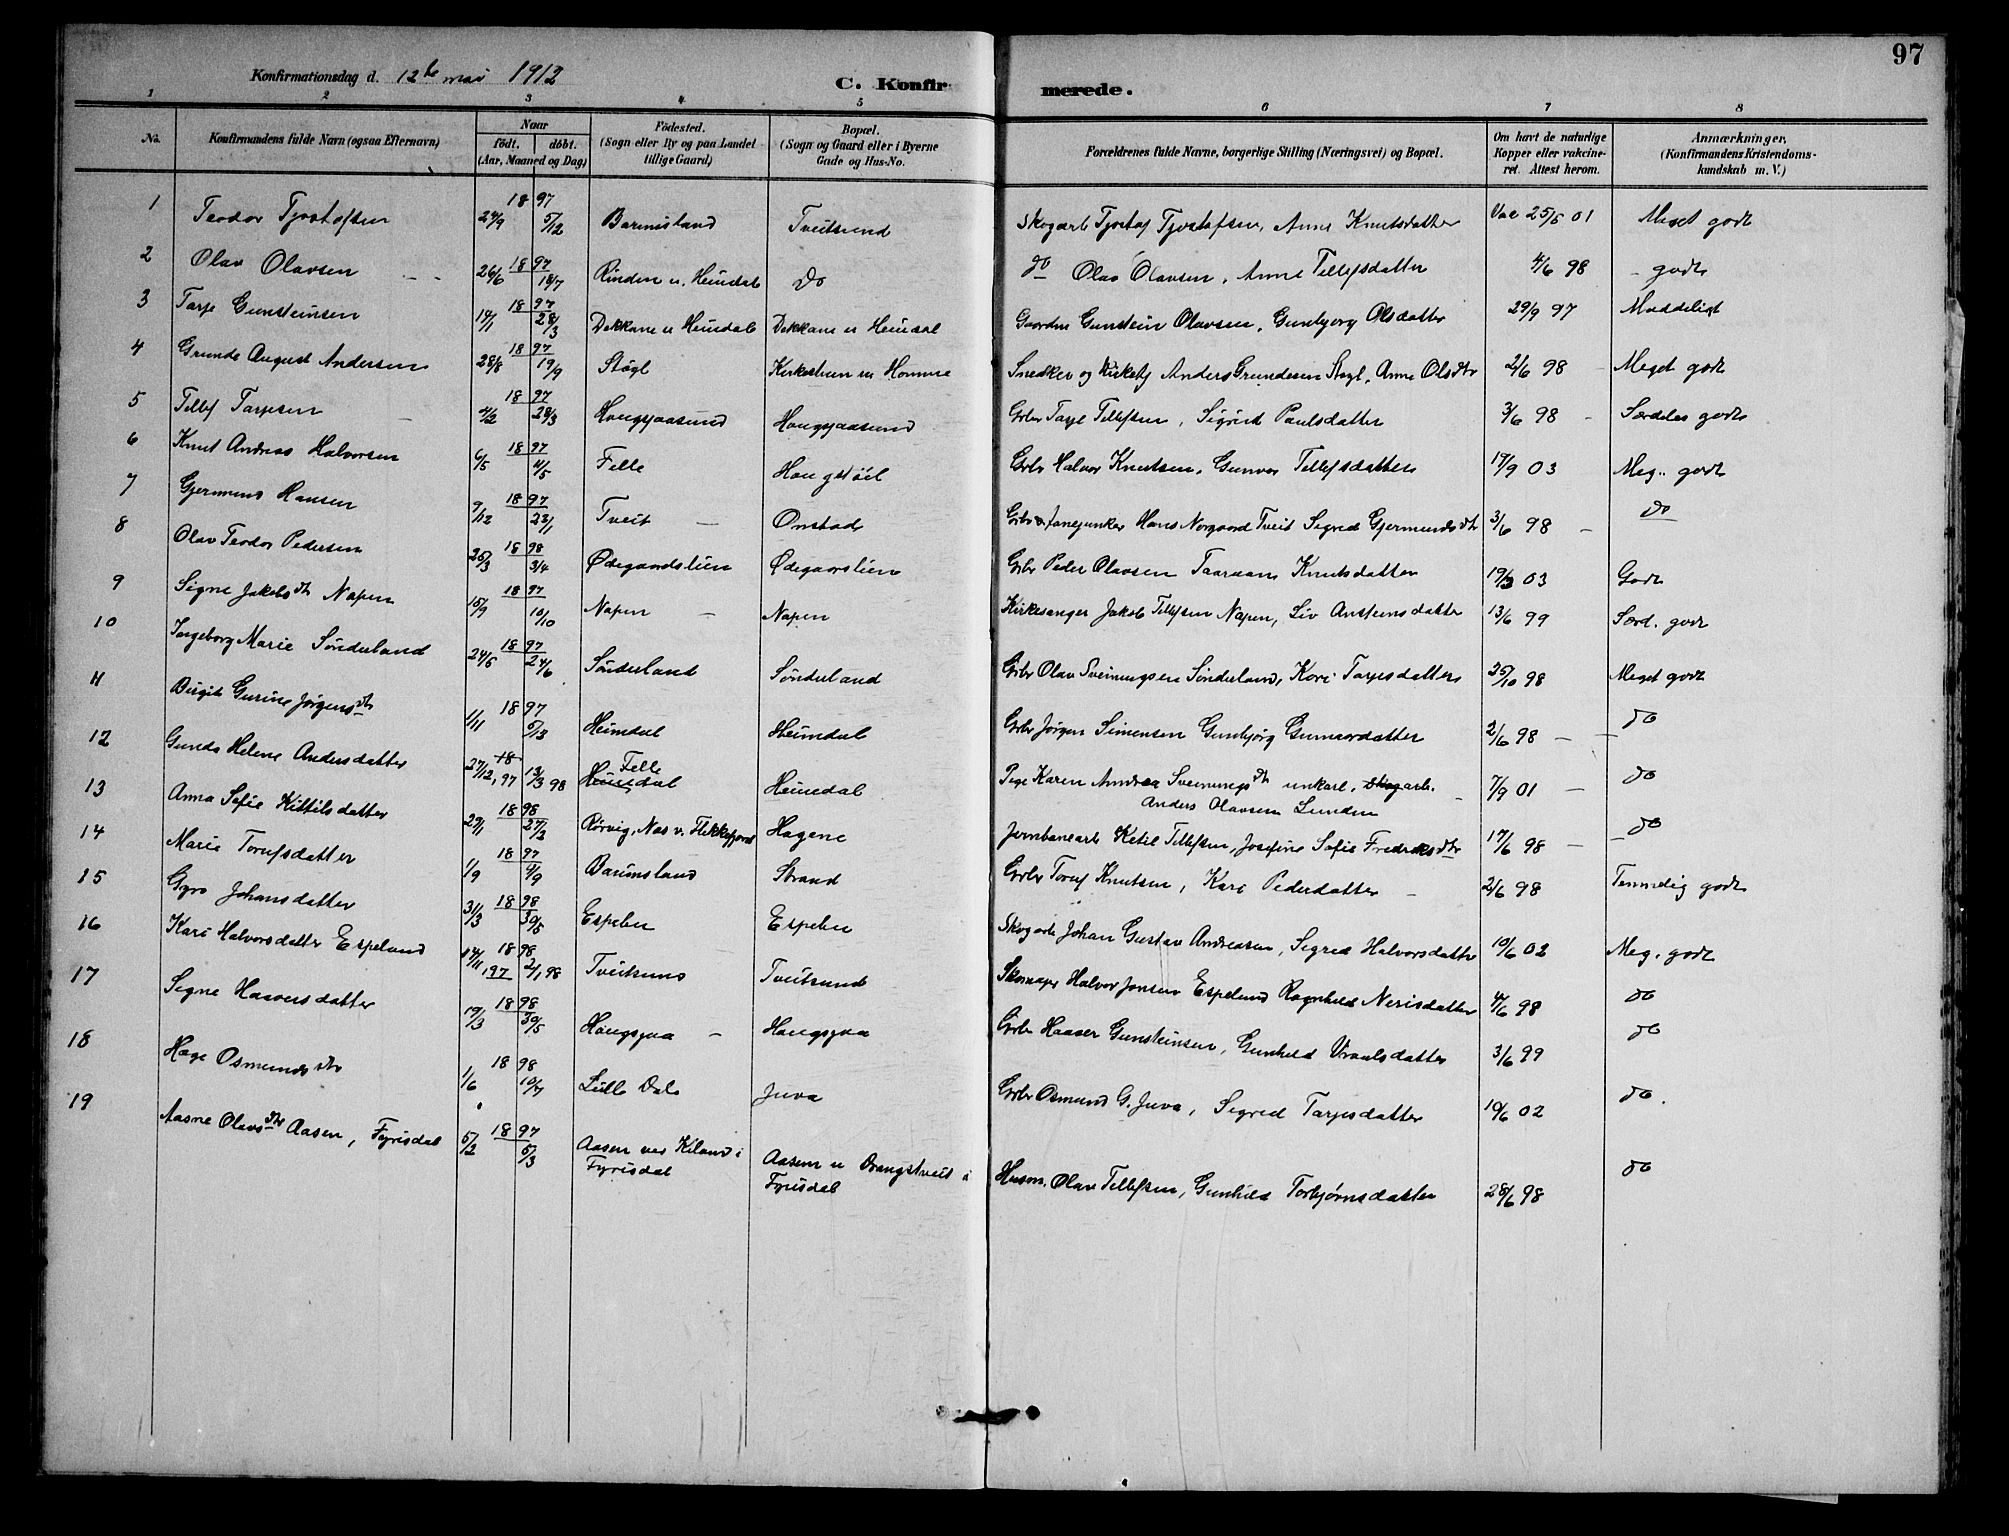 97
Konfirmationsdag d. 12te mai 1912
C. Konfirmerede.
1 2 3 4 5 6 7 8
No. Konfirmandens fulde Navn (ogsaa Efternavn) Naar født. døbt. (Aar, Maaned og Dag) Fødested. (Sogn eller By og paa Landet tillige Gaard) Bopæl. (Sogn og Gaard eller i Byerne Gade og Hus-No. Forældrenes fulde Navne, borgerlige Stilling (Næringsvei) og Bopæl. Om havt de naturlige Kopper eller vakcineret. Attest herom. Anmærkninger, (Konfirmandens Kristendomskundskab m. V.)
1 Teodor Tjostofsen 1897 24/9 5/12 Barmisland Tveitsund Skogarb Tjostof Tjostofsen, Anne Knutsdatter Vac 25/5 01 Meget godt
2 Olav Olavsen 1897 26/6 18/7 Rinden u. Heimdal Do do Olav Olavsen, Anne Tellefsdatter 4/6 98 godt
3 Tarje Gunsteinsen 1897 14/1 28/3 Dekkane u Heimdal Dekkane u Heimdal Gaardm Gunstein Olavsen, Gunbjorg Olsdatter 29/9 97 Maadeligt
4 Grunde August Andersen 1897 28/8 19/9 Støgl Kirkestuen u Homme Snedker og Kirketj Anders Grundesen Støgl, Anne Olsdtr 2/6 98 Meget godt
5 Tellef Tarjesen 1897 4/2 28/3 Haugsjaasund Haugsjaasund Grbr Tarje Tellefsen, Sigrid Paulsdatter 3/6 98 Særdeles godt
6 Knut Andreas Halvorsen 1897 6/5 4/5 Felle Haugstöil Grbr Halvor Knutsen, Gunvor Tellefsdatter 19/9 03 Meg.. godt
7 Gjermund Hansen 1897 9/12 23/1 Tveit Onstad Grbr & Fanejunker Hans Norgaard Tveit Sigred Gjermundsdtr 3/6 98 do
8 Olav Teodor Pedersen 1898 25/3 3/4 Ødegaardslien Ødegaarslien Grbr Peder Olavsen Taaraan Knutsdatter 19/9 03 Godt
9 Signe Jakobsdtr Napen 1897 15/9 10/10 Napen Napen Kirkesanger Jakob Tellefsen Napen, Liv Anstensdatter 13/6 99 Særd. godt
10 Ingeborg Marie Sönderland 1897 24/5 24/6 Sönderland Sönderland Grbr Olav Sveinungsen Sönderland, Kari Tarjesdatter 25/10 98 Meget godt
11 Birgit Gurine Jørgensdtr 1897 1/11 5/13 Heimdal Heimdal Grbr Jørgen Simensen Gunbjörg Gunnardatter 2/6 98 do
12 Gunda Helene Andersdatter 18 27/12, 97 13/3 98 Heimdal Felle Heimdal Pige Karen Andrea Sveinungsdtr unkarl, Skogarb. Anders Olavsen Lunden 7/9 01 do
13 Anna Sofie Kittilsdatter 1898 29/1 27/3 Rørvig, Nas v. Flekkefjord Hagene Jernbanearb Ketil Tellefsen, Josefine Sofie Fredriksdtr 17/6 98 do
14 Marie Torufsdatter 1897 1/9 4/9 Baumsland Strand Grbr Toruf Knutsen, Kari Pederdatter 2/6 98 Temmelig godt
15 Gyro Johansdatter 1898 31/3 30/5 Espelien Espelien Skogarb Johan Gustav Andreasen, Sigred Halvorsdatter 19/6 02 Meg. godt
16 Kari Halvorsdatter Espeland 1898 14/11 97 2/1 98 Tveitsund Tveitsund Skomager Halvor Jonsen Espelund Ragnhild Nerisdatter 4/6 98 do
17 Signe Haaversdatter 1898 19/3 30/5 Haugsjaa Haugsjaa Grbr Haaver Gunsteinsen, Gunhild Vraalsdatter 3/6 99 do
18 Hæge Osmundsdtr 1898 1/6 10/7 Lille Dale Juva Grbr Osmund G. Juva, Sigred Tarjesdatter 19/6 02 do.
19 Aasne Olavsdtr Aasen, Fyrisdal 1897 5/2 5/3 Aasen ved Kiland i Fyrisdal Aasen u Drangstveit i Fyrisdal Husm. Olav Tellefsen, Gunhild Torbjørnsdatter 28/6 98 do